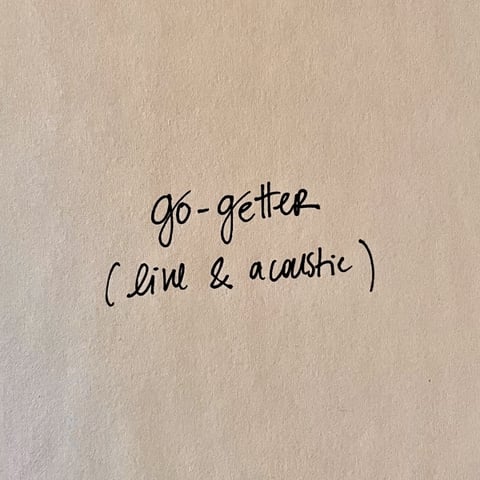 go-getter
(live & acoustic)